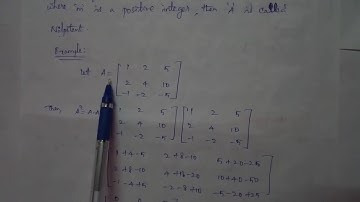 where 'm' is a positive integer, then 'A' is called
Nilpotent.
Example:
Let A = [ 1 2 5
2 4 10
-1 -2 -5 ]
Then, A² = A·A [ 1 2 5 ] [ 1 2 5
2 4 10 2 4 10
-1 -2 -5 -1 -2 -5 ]
1+4-5 2+8-10 5+20-25
2+8-10 4+16-20 10+40-50
-1-4+5 -2-8+10 -5-20+25